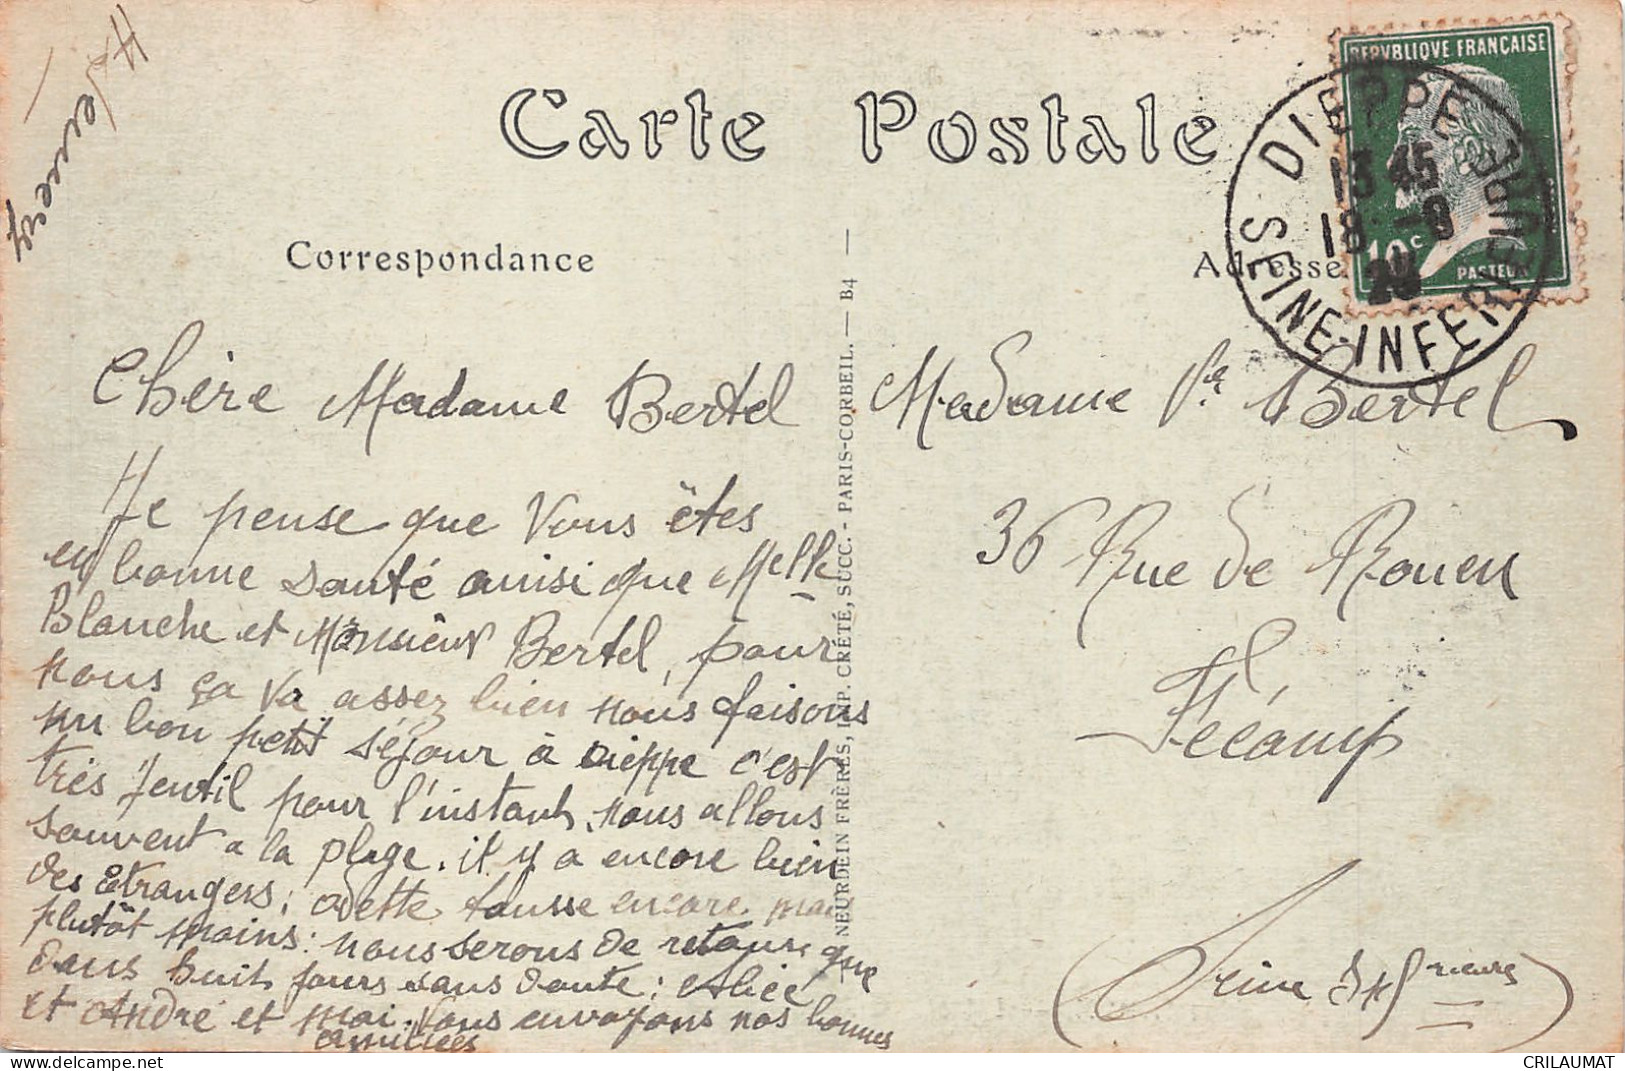 Carte Postale
REPVBLIQVE FRANÇAISE
10c
PASTEUR
DIEPPE
13 45
18 -8
SEINE-INFERIEURE
Correspondance
Adresse
Chère Madame Bertel
Je pense que Vous êtes
en bonne santé ainsi que Melle
Blanche et Monsieur Bertel, pour
nous ça va assez bien nous faisons
un bon petit séjour à Dieppe c'est
très jentil pour l'instant, nous allons
souvent a la plage. il y a encore bien
des Etrangers; Odette tousse encore mais
plutôt moins: nous serons de retour que
dans huit jours sans doute: Alice
et André et moi. Vous envoyons nos bonnes
amitiées
NEURDEIN FRÈRES, IMP. CRÉTÉ, SUCC. - PARIS-CORBEIL. — B4 —
Madame Ve Bertel
36 Rue de Rouen
Fécamp
(Seine Infrieure)
CRILAUMAT